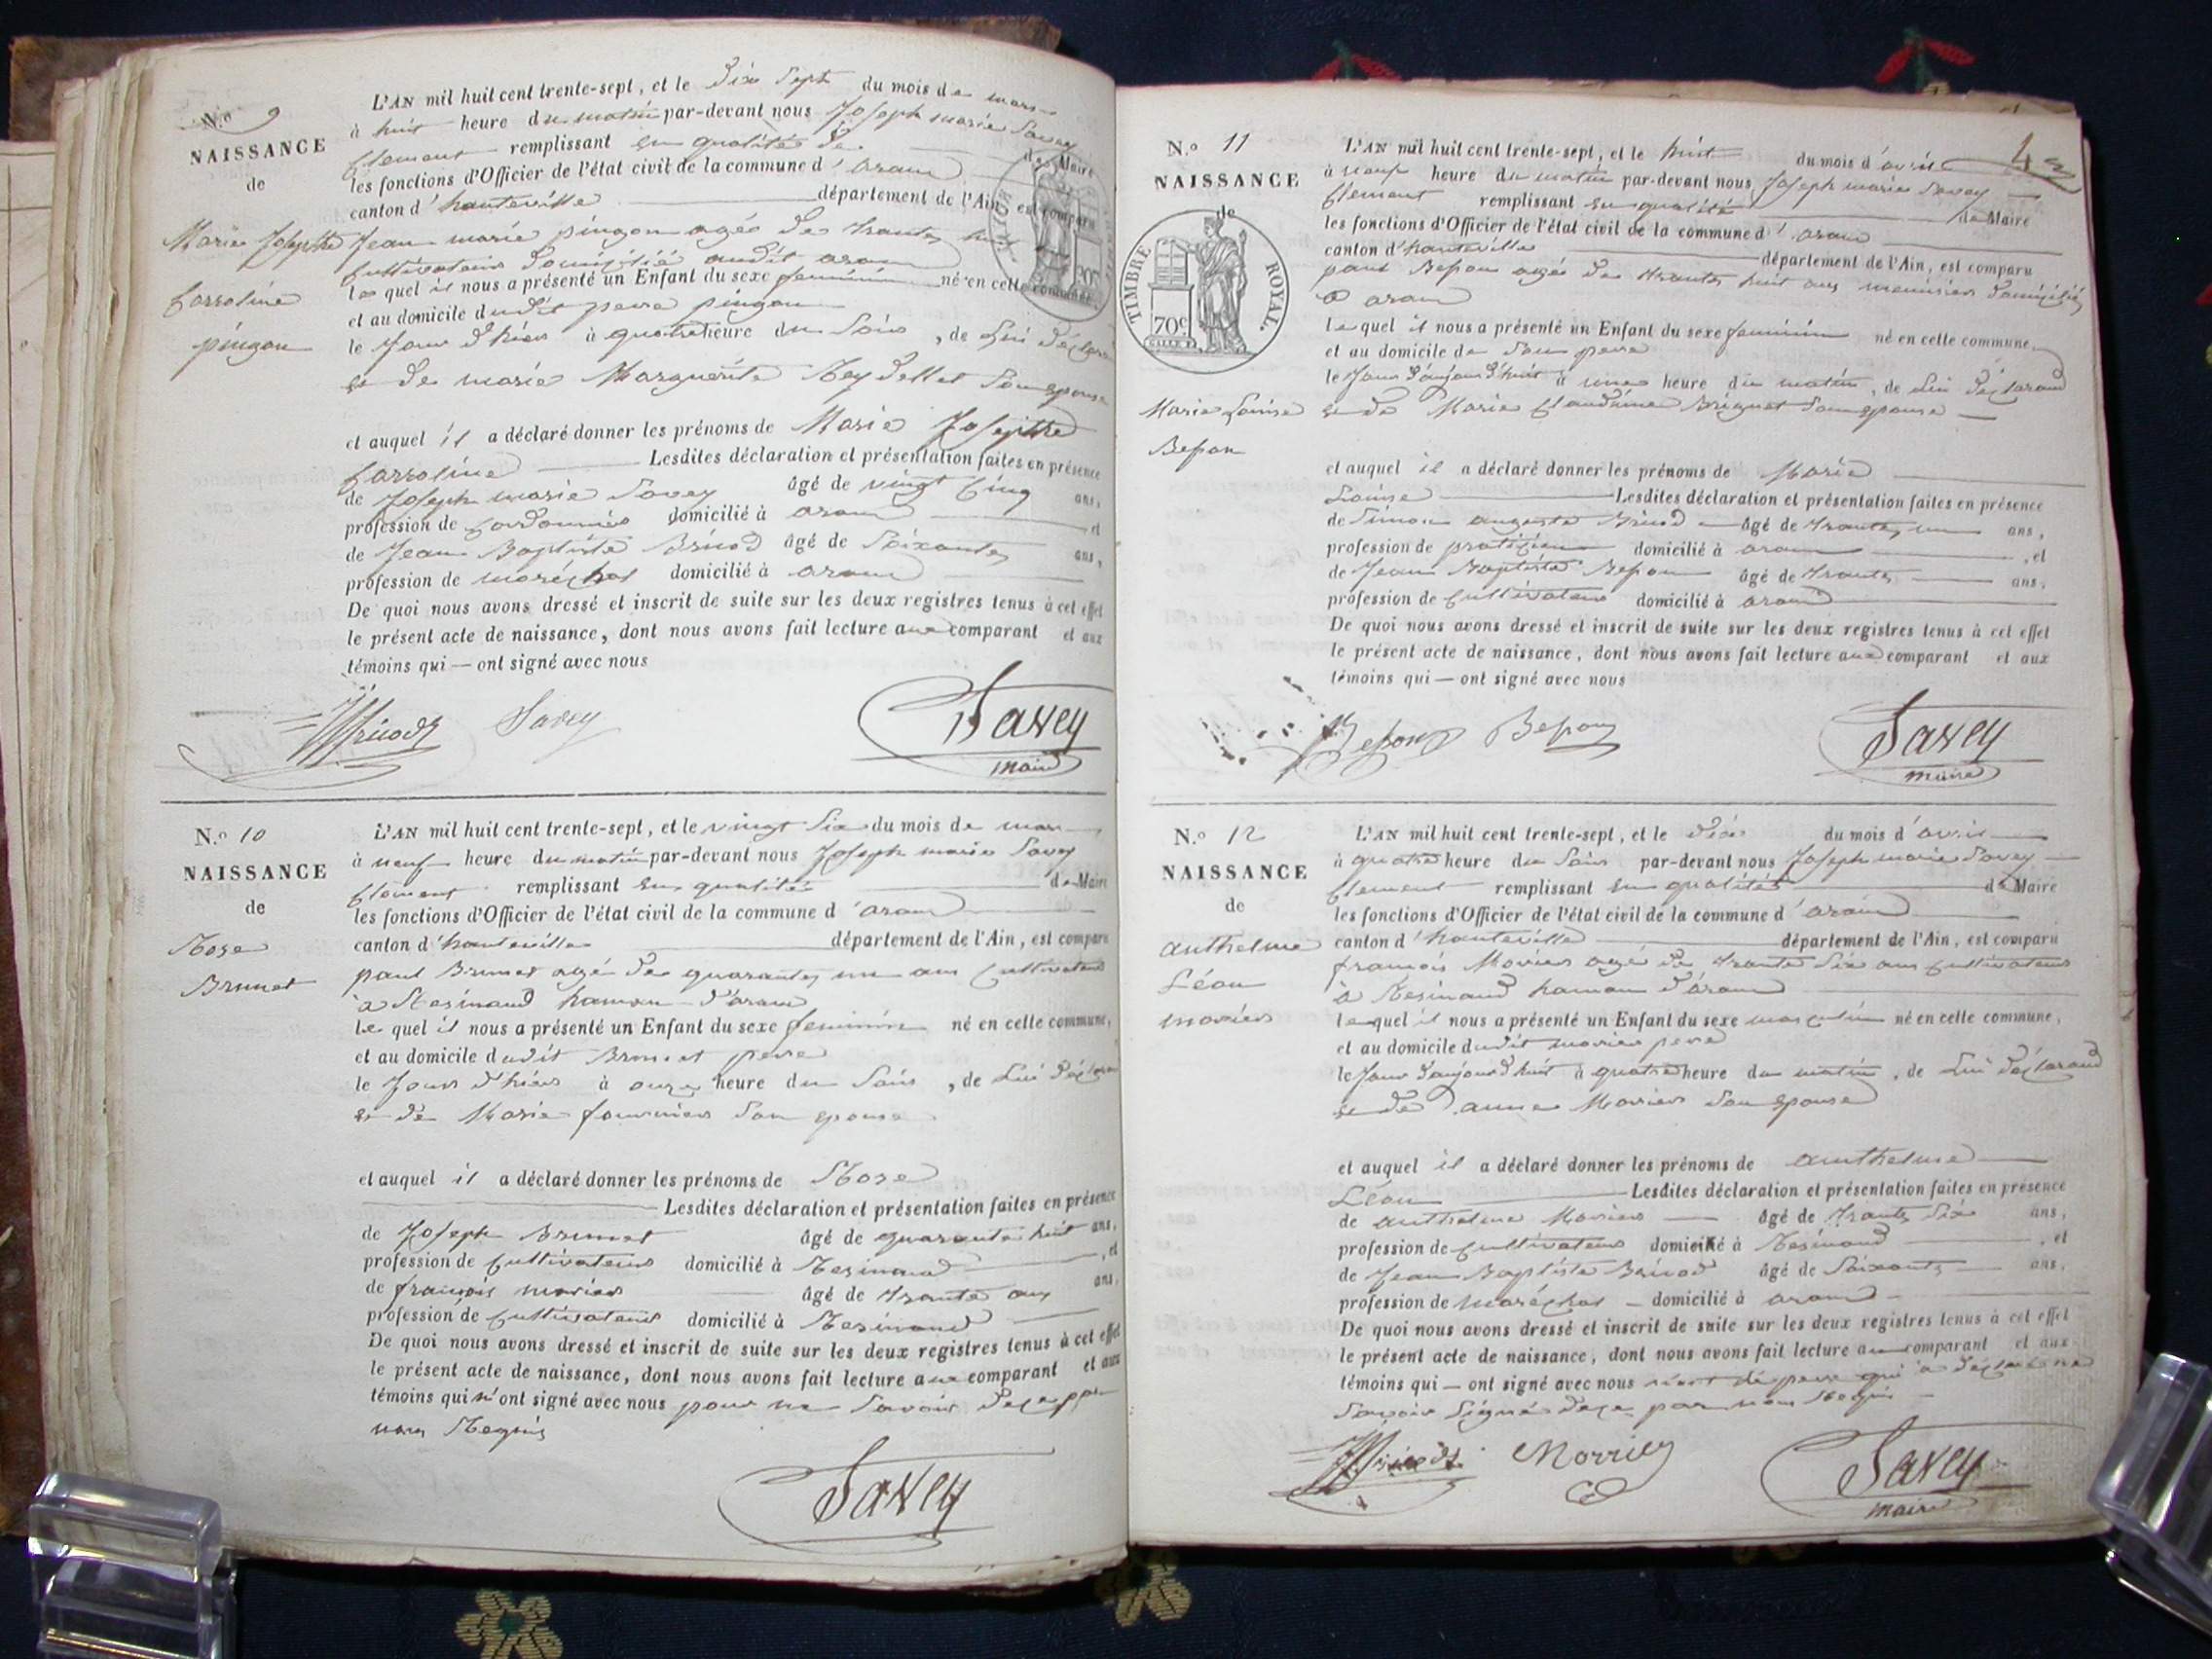 N.o 9
NAISSANCE
de
Marie Josephte
Carroline
pingon
L'AN mil huit cent trente-sept, et le Dix Sept du mois de mars
à huit heure du matin par-devant nous Joseph marie Savey
Clement remplissant en qualités de de Maire
les fonctions d'Officier de l'état civil de la commune d'aran
canton d'hauteville département de l'Ain, est comparu
Jean marie pingon agée de trante huit
Cultivateur Domicilié audit aran
lequel il nous a présenté un Enfant du sexe feminin né en cette commune,
et au domicile dudit perre pingon
le Jour d'hier à quatre heure du Soir, de Lui Déclara
et de marie Marguerite Reydellet Son epouse
et auquel il a déclaré donner les prénoms de Marie Josephte
Carroline Lesdites déclaration et présentation faites en présence
de Joseph marie Savey âgé de vingt Cinq ans,
profession de Cordonnier domicilié à aran et
de Jean Baptiste Brucod âgé de Soixante ans,
profession de maréchal domicilié à aran
De quoi nous avons dressé et inscrit de suite sur les deux registres tenus à cet effet
le présent acte de naissance, dont nous avons fait lecture aux comparant et aux
témoins qui — ont signé avec nous
Savey Savey
maire
N.o 10
NAISSANCE
de
Rose
Brunet
L'AN mil huit cent trente-sept, et le vingt Six du mois de mars
à neuf heure du matin par-devant nous Joseph marie Savey
Clement remplissant en qualités de Maire
les fonctions d'Officier de l'état civil de la commune d'aran
canton d'hauteville département de l'Ain, est comparu
paul Brunet agé de quarante un ans Cultivateur
à Resinand hamau d'aran
lequel il nous a présenté un Enfant du sexe feminin né en cette commune,
et au domicile dudit Brunet perre
le Jour d'hier à onze heure du Soir, de Lui Déclara
et de Marie fournier Son epouse
et auquel il a déclaré donner les prénoms de Rose
Lesdites déclaration et présentation faites en présence
de Joseph Brunet âgé de quarante huit ans,
profession de Cultivateur domicilié à Resinand, et
de françois morier âgé de trante ans ans,
profession de Cultivateur domicilié à Resinand
De quoi nous avons dressé et inscrit de suite sur les deux registres tenus à cet effet
le présent acte de naissance, dont nous avons fait lecture aux comparant et aux
témoins qui n'ont signé avec nous pour ne Savoir Dece par
nous Requis
Savey
N.o 11
NAISSANCE
de
TIMBRE ROYAL.
70c
Marie Louise
Beson
L'AN mil huit cent trente-sept, et le huit du mois d'avril
à neuf heure du matin par-devant nous Joseph marie Savey
Clement remplissant en qualité de Maire
les fonctions d'Officier de l'état civil de la commune d'aran
canton d'hauteville département de l'Ain, est comparu
paul Beson agé de trante huit ans menuisier Domicilié
à aran
lequel il nous a présenté un Enfant du sexe feminin né en cette commune,
et au domicile de Son perre
le Jour d'aujourd'huit à une heure du matin, de Lui Déclarand
et de Marie Claudine Briguet Son epouse
et auquel il a déclaré donner les prénoms de Marie
Louise Lesdites déclaration et présentation faites en présence
de Simon auguste Brucod âgé de trante un ans,
profession de pratitien domicilié à aran, et
de Jean Baptiste Beson âgé de trante ans,
profession de Cultivateur domicilié à aran
De quoi nous avons dressé et inscrit de suite sur les deux registres tenus à cet effet
le présent acte de naissance, dont nous avons fait lecture aux comparant et aux
témoins qui — ont signé avec nous
Beson Beson Savey
maire
N.o 12
NAISSANCE
de
anthelme
Léon
morier
L'AN mil huit cent trente-sept, et le Dix du mois d'avril
à quatre heure du Soir par-devant nous Joseph marie Savey
Clement remplissant en qualités de Maire
les fonctions d'Officier de l'état civil de la commune d'aran
canton d'hauteville département de l'Ain, est comparu
françois Morier agé de trante Six ans Cultivateur
à Resinand hamau d'aran
lequel il nous a présenté un Enfant du sexe masculin né en cette commune,
et au domicile dudit morier perre
le Jour d'aujourd'huit à quatre heure du matin, de Lui Déclarand
et de anne Morier Son epouse
et auquel il a déclaré donner les prénoms de anthelme
Léon Lesdites déclaration et présentation faites en présence
de anthelme Morier âgé de trante Six ans,
profession de Cultivateur domicilié à Resinand, et
de Jean Baptiste Brucod âgé de Soixante ans,
profession de maréchal domicilié à aran
De quoi nous avons dressé et inscrit de suite sur les deux registres tenus à cet effet
le présent acte de naissance, dont nous avons fait lecture au comparant et aux
témoins qui — ont signé avec nous perre qui a declaré ne
Savoir Signé Dece par nous Requis
Morrier Savey
maire